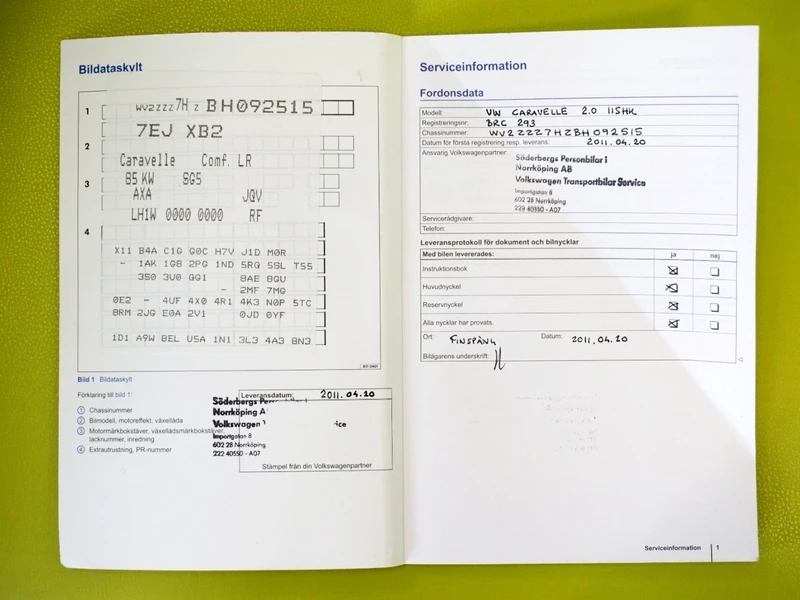 Bildataskylt
1 WV2ZZZ7HZ BH092515
7EJ XB2
2
Caravelle Comf. LR
3 85 KW SG5
AXA JGV
LH1W 0000 0000 RF
4
X11 B4A C1G G0C H7V J1D M0R
- 1AK 1G8 2PG 1ND 5RQ 5SL T5S
3S0 3U0 GG1 8AE 8GU
- 2MF 7MG
0E2 - 4UF 4X0 4R1 4K3 N0P 5TC
8RM 2JG E0A 2V1 0JD 0YF
1D1 A9W BEL U5A 1N1 3L3 4A3 8N3
Bild 1 Bildataskylt
Förklaring till bild 1:
1 Chassinummer
2 Bilmodell, motoreffekt, växellåda
3 Motormärkbokstäver, växellådsmärkbokstäver,
lacknummer, inredning
4 Extrautrustning, PR-nummer
Leveransdatum: 2011.04.20
Söderbergs
Norrköping A
Volkswagen
Importgatan 8
602 28 Norrköping
222 40550 - A07
Stämpel från din Volkswagenpartner
Serviceinformation
Fordonsdata
Modell: VW CARAVELLE 2.0 115HK
Registreringsnr: BRC 293
Chassinummer: WV2ZZZ7HZBH092515
Datum för första registrering resp. leverans: 2011.04.20
Ansvarig Volkswagenpartner: Söderbergs Personbilar i
Norrköping AB
Volkswagen Transportbilar Service
Importgatan 8
602 28 Norrköping
222 40550 - A07
Servicerådgivare:
Telefon:
Leveransprotokoll för dokument och bilnycklar
Med bilen levererades: ja nej
Instruktionsbok
Huvudnyckel
Reservnyckel
Alla nycklar har provats.
Ort: FINSPÅNG Datum: 2011.04.20
Bilägarens underskrift:
Serviceinformation 1